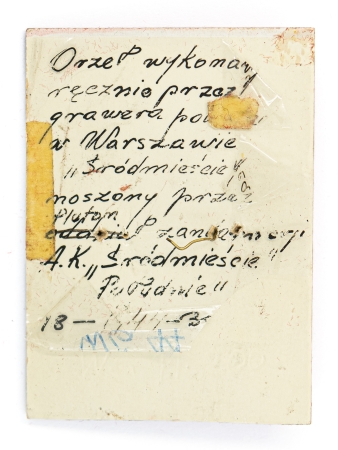 Orzeł wykonany
ręcznie przez
grawera
w Warszawie
„Śródmieście
noszony przez
pluton
żandarmerji
A.K. „Śródmieście
Południe"
18 — 1944 —